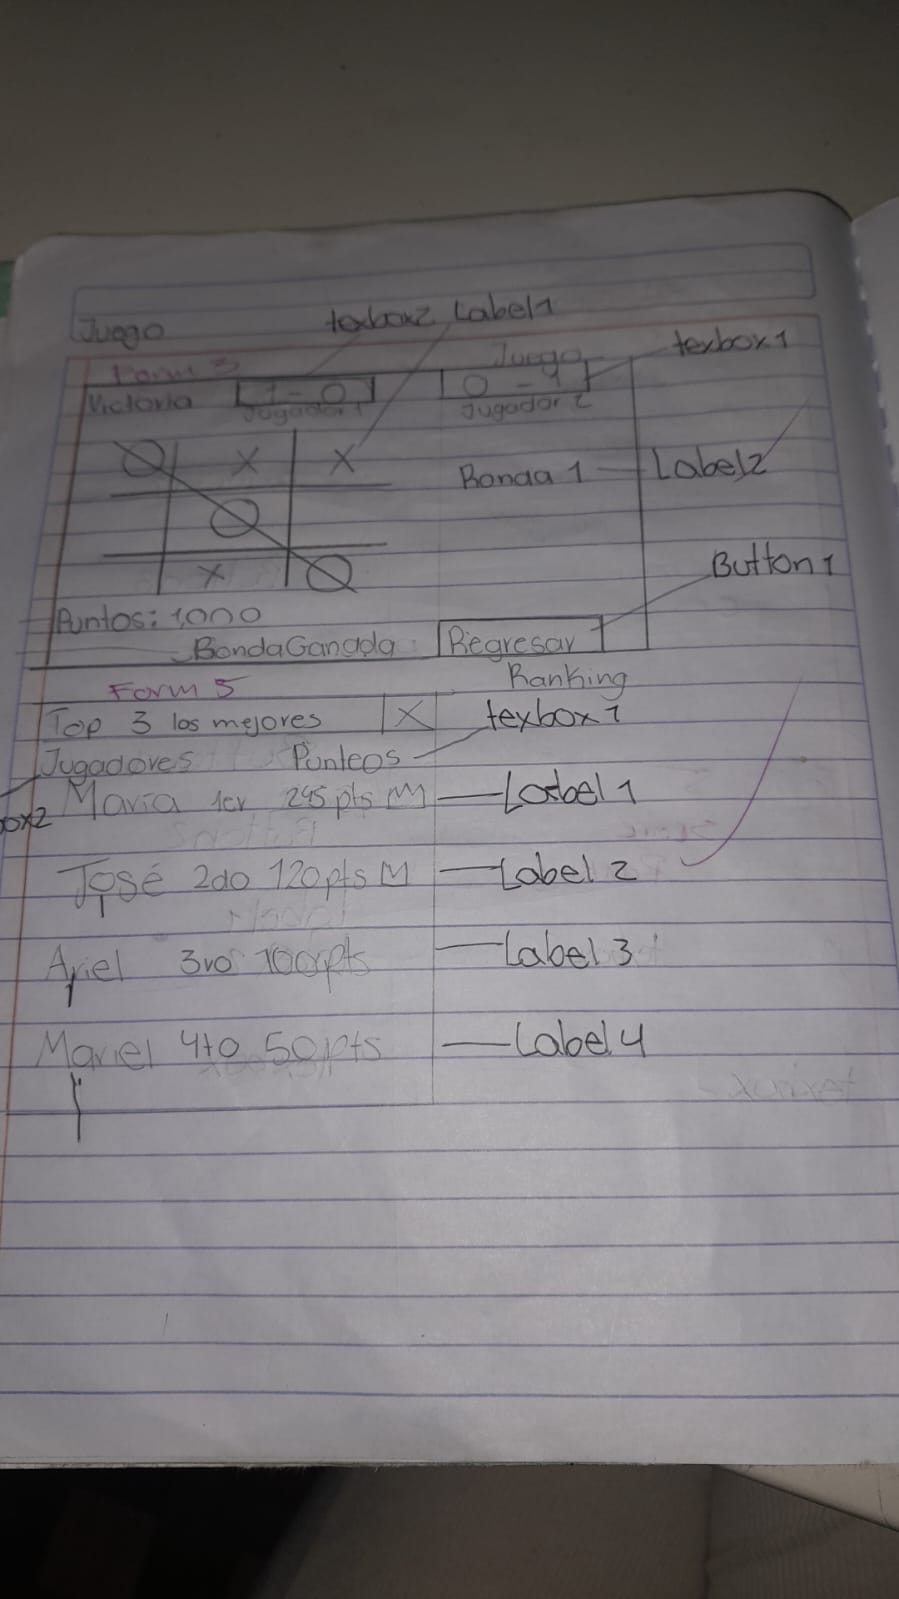 Juego texbox2 Label1
Form 3 Juego texbox1
Victoria 1 - 0 0 - 1
Jugador 1 Jugador 2
O X X
Ronda 1 Label2
O
X O
Button1
Puntos: 1,000
RondaGanada Regresar
Form 5 Ranking
Top 3 los mejores X texbox1
Jugadores Punteos
María 1er 245 pts Label1
ox2
José 2do 120pts Label 2
Ariel 3ro 100pts Label 3
Mariel 4to 50pts Label 4